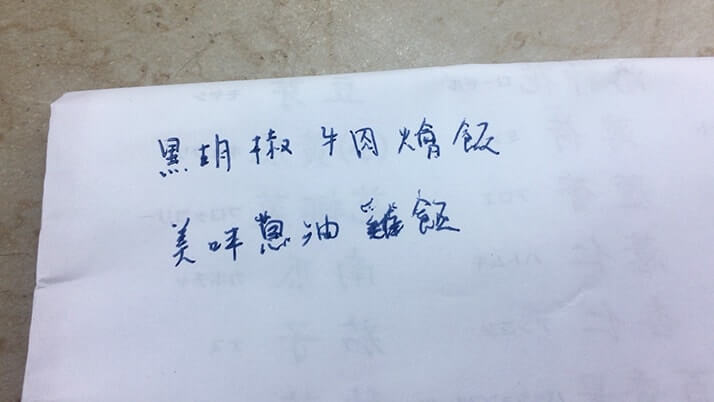 黑胡椒牛肉燴飯
美味蔥油雞飯